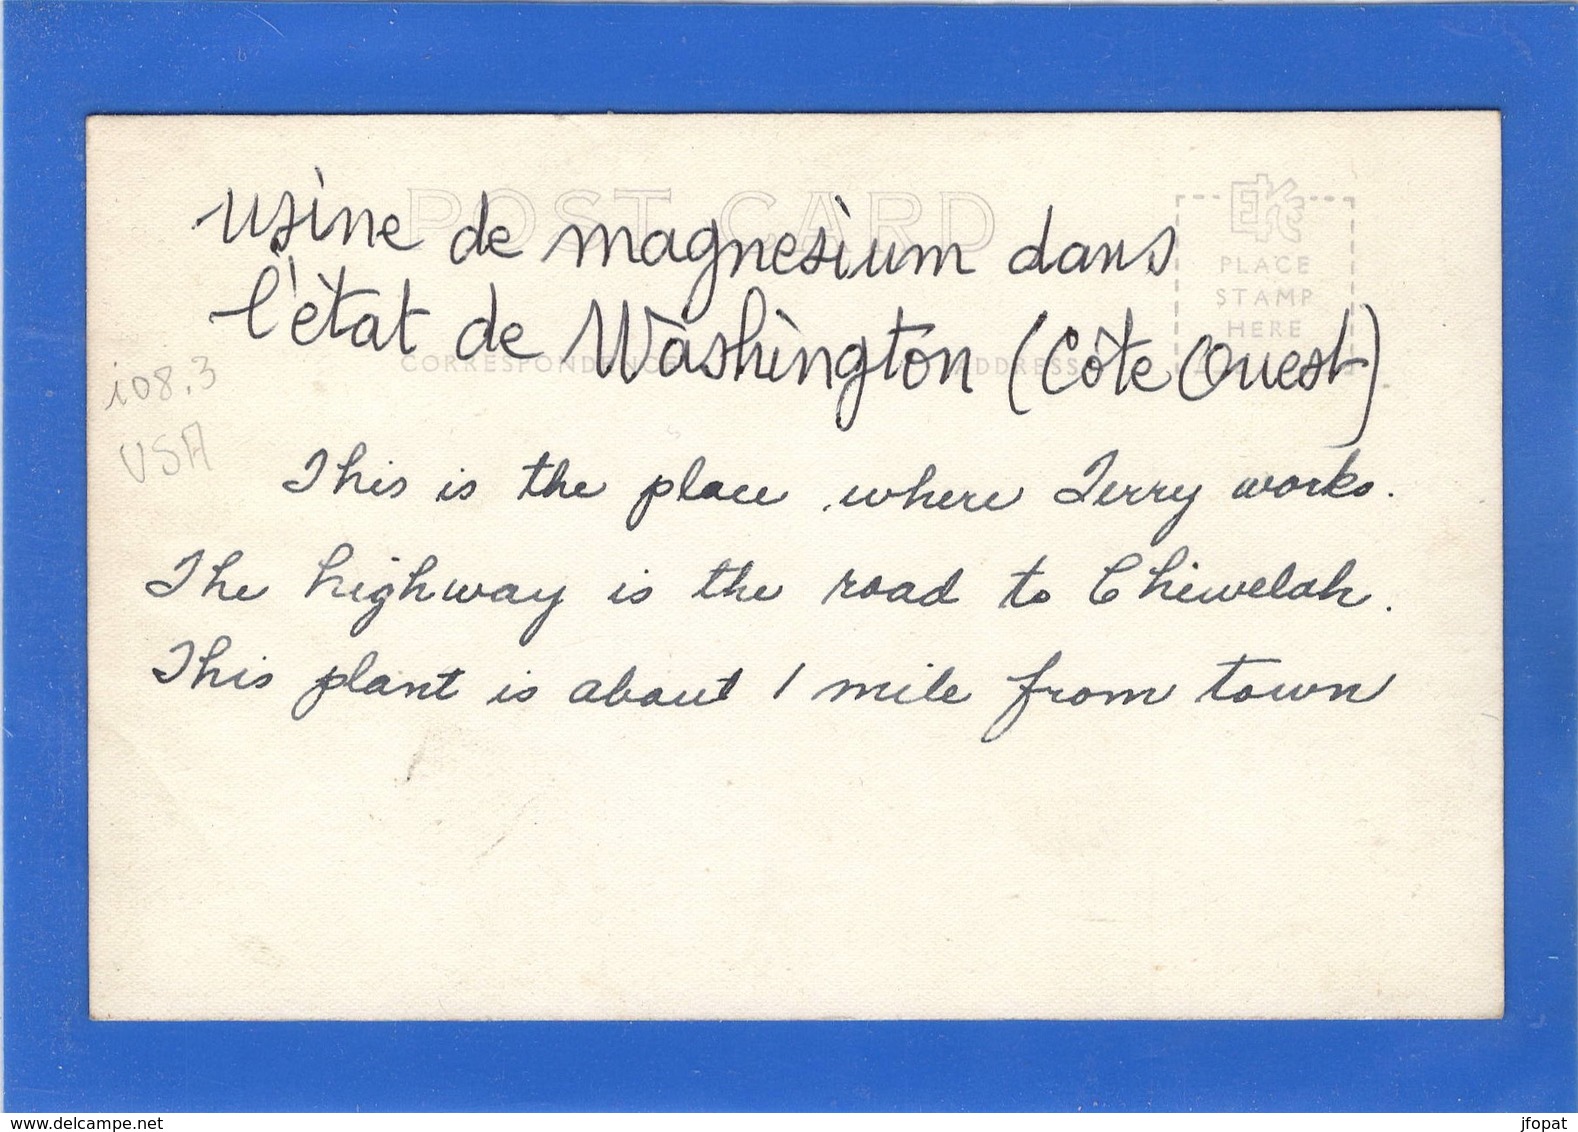 POST CARD
usine de magnesium dans
l'état de Washington (Côte Ouest)
EKC
PLACE
STAMP
HERE
CORRESPONDENCE
ADDRESS
108.3
USA
This is the place where Terry works.
The highway is the road to Chewelah.
This plant is about 1 mile from town
www.delcampe.net
jfopat